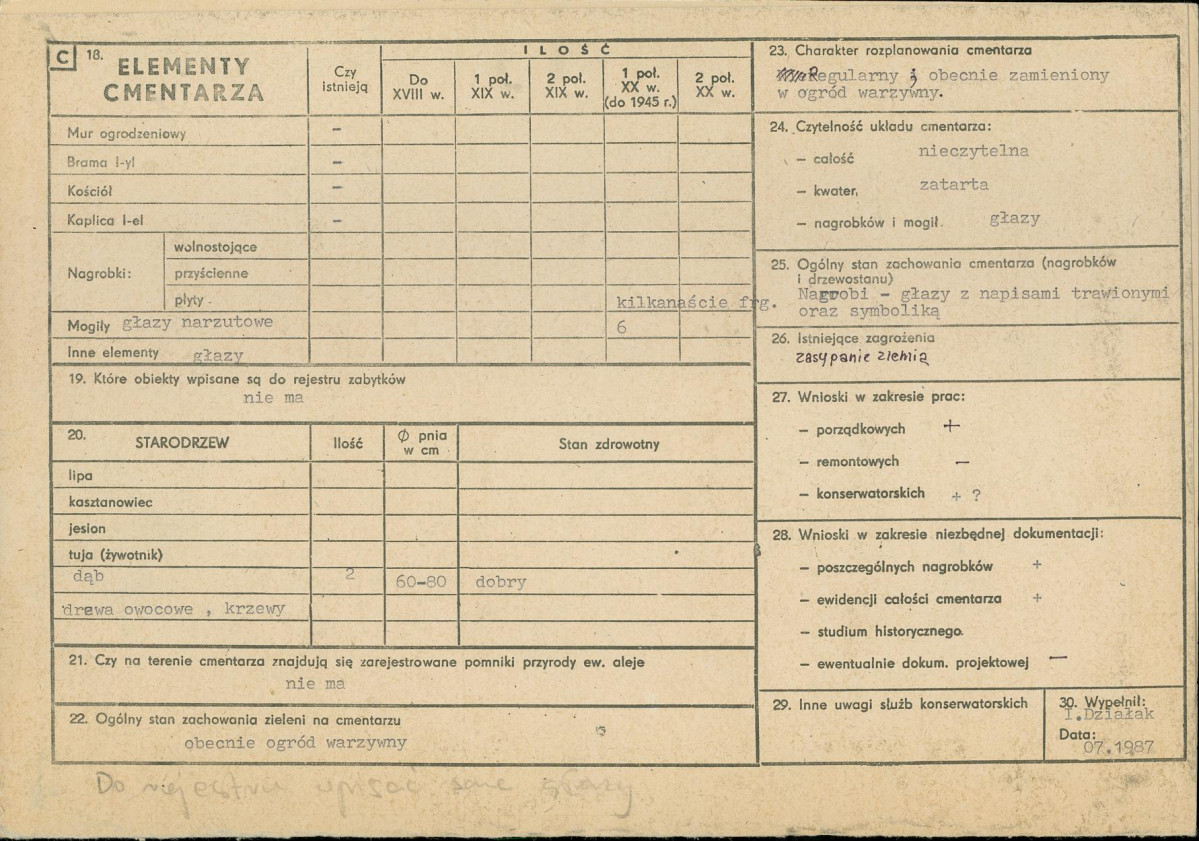 C 18. ELEMENTY CMENTARZA
Czy istnieją
ILOŚĆ
Do XVIII w.
1 poł. XIX w.
2 poł. XIX w.
1 poł. XX w. (do 1945 r.)
2 poł. XX w.
Mur ogrodzeniowy –
Brama I-yl –
Kościół –
Kaplica I-el –
Nagrobki:
wolnostojące
przyścienne
płyty - kilkanaście frg.
Mogiły głazy narzutowe 6
Inne elementy głazy
19. Które obiekty wpisane są do rejestru zabytków
nie ma
20. STARODRZEW
Ilość
Ø pnia w cm
Stan zdrowotny
lipa
kasztanowiec
jesion
tuja (żywotnik)
dąb 2 60-80 dobry
drewa owocowe , krzewy
21. Czy na terenie cmentarza znajdują się zarejestrowane pomniki przyrody ew. aleje
nie ma
22. Ogólny stan zachowania zieleni na cmentarzu
obecnie ogród warzywny
23. Charakter rozplanowania cmentarza
Regularny i obecnie zamieniony
w ogród warzywny.
24. Czytelność układu cmentarza:
– całość nieczytelna
– kwater, zatarta
– nagrobków i mogił. głazy
25. Ogólny stan zachowania cmentarza (nagrobków
i drzewostanu)
Nagrobi – głazy z napisami trawionymi
oraz symboliką
26. Istniejące zagrożenia
zasypanie ziemią
27. Wnioski w zakresie prac:
– porządkowych +
– remontowych –
– konserwatorskich + ?
28. Wnioski w zakresie niezbędnej dokumentacji:
– poszczególnych nagrobków +
– ewidencji całości cmentarza +
– studium historycznego.
– ewentualnie dokum. projektowej –
29. Inne uwagi służb konserwatorskich
30. Wypełnił:
I.Działak
Data:
07.1987
Do rejestru wpisać same głazy